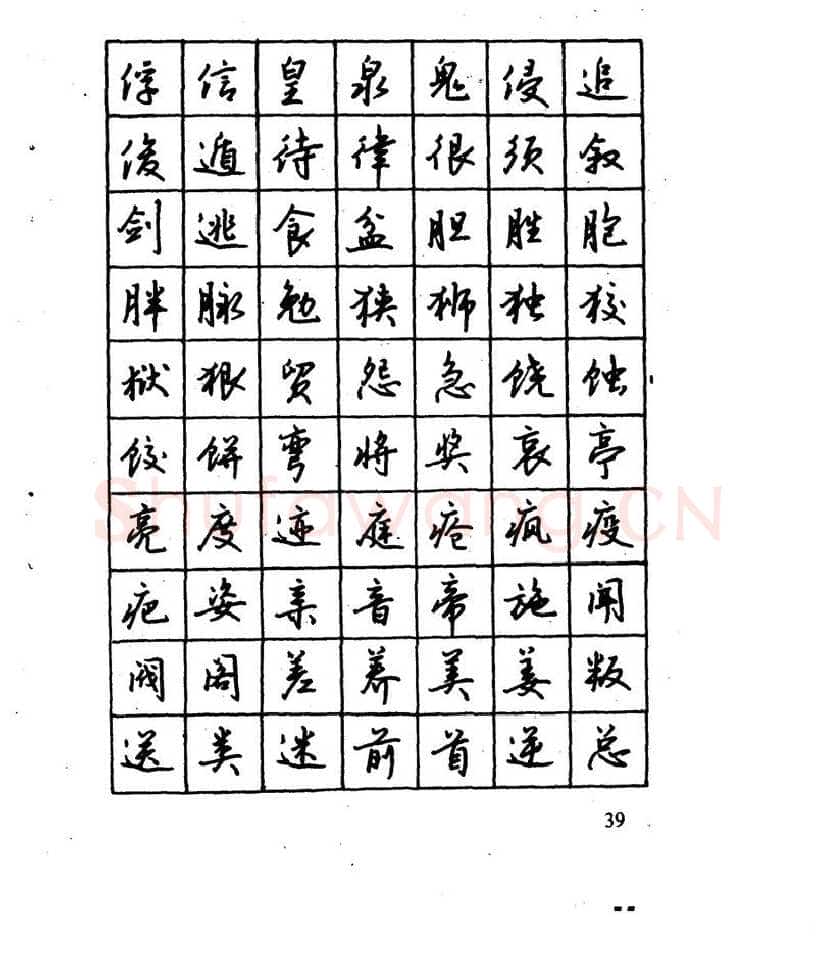 俘 信 皇 泉 鬼 侵 追
俊 遁 待 律 很 须 叙
剑 逃 食 盆 胆 胜 胞
胖 脉 勉 狭 狮 独 狡
狱 狠 贸 怨 急 饶 蚀
饺 饼 弯 将 奖 哀 亭
亮 度 迹 庭 疮 疯 疫
疤 姿 亲 音 帝 施 闻
阀 阁 差 养 美 姜 叛
送 类 迷 前 首 逆 总
Shufawang.CN
39